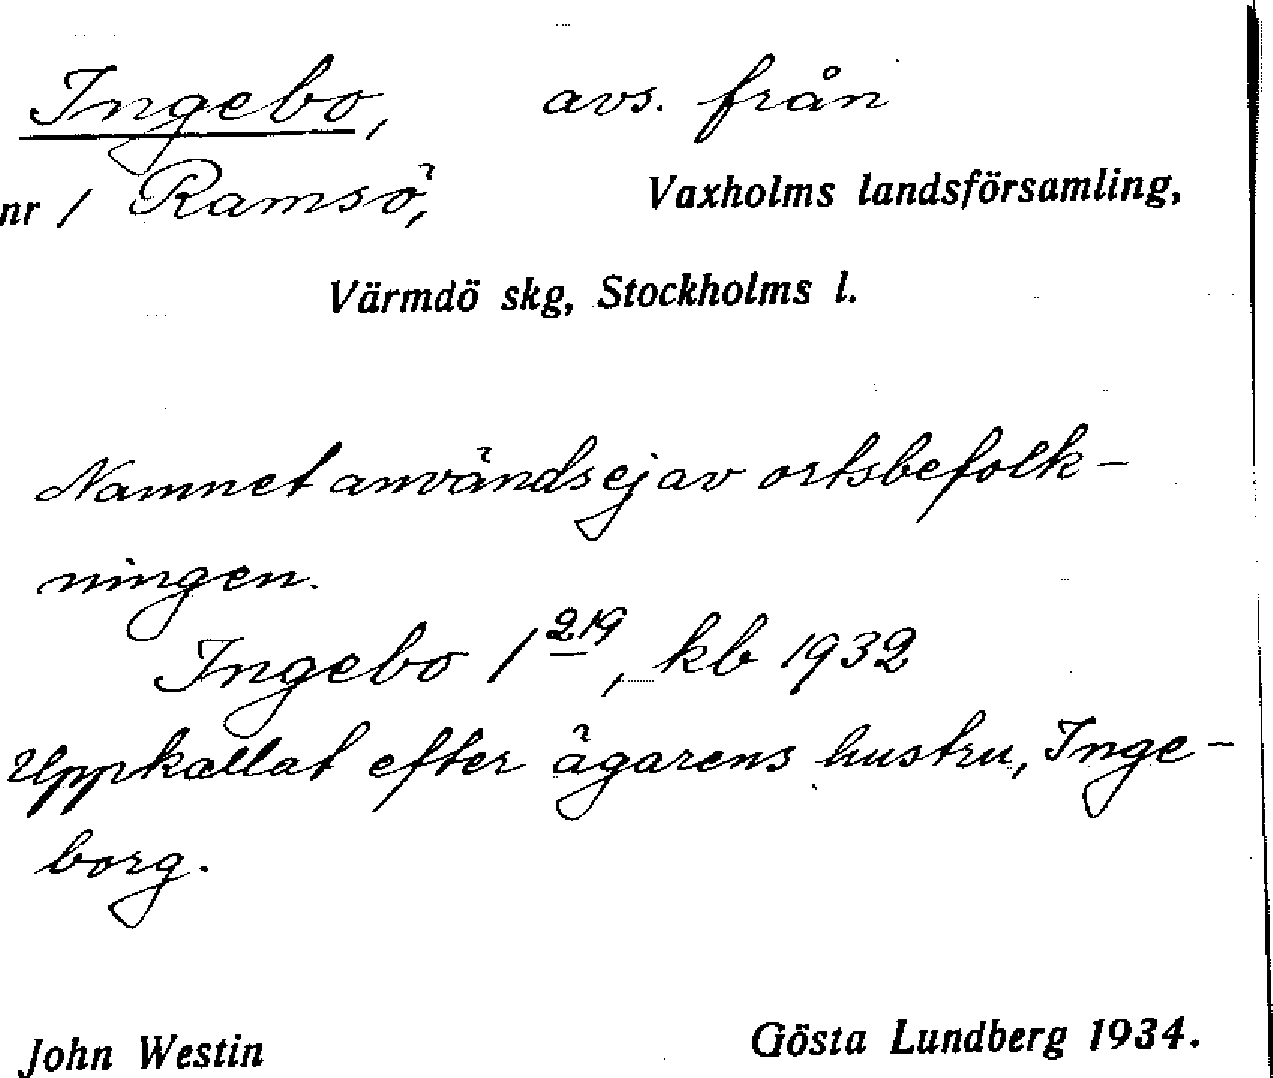 Ingebo, avs. från
nr 1 Ramsö, Vaxholms landsförsamling,
Värmdö skg, Stockholms l.
Namnet används ej av ortsbefolk-
ningen.
Ingebo 1 219, kb 1932
Uppkallat efter ägarens hustru, Inge-
borg.
John Westin Gösta Lundberg 1934.